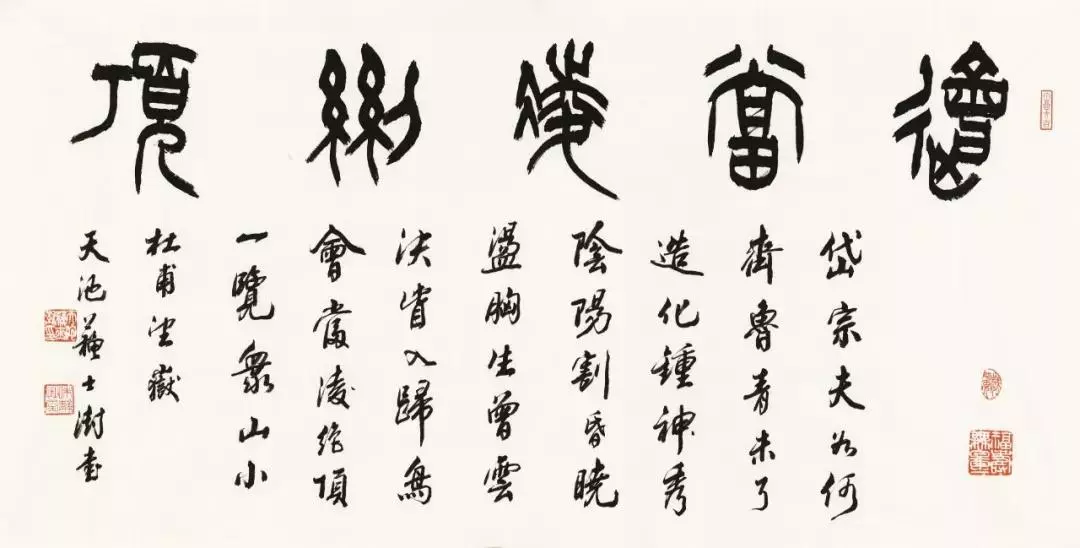 會當凌絕頂
岱宗夫如何
齊魯青未了
造化鍾神秀
陰陽割昏曉
盪胸生曾雲
決眥入歸鳥
會當凌絕頂
一覽衆山小
杜甫望嶽
天池蘇士澍書
福壽無量